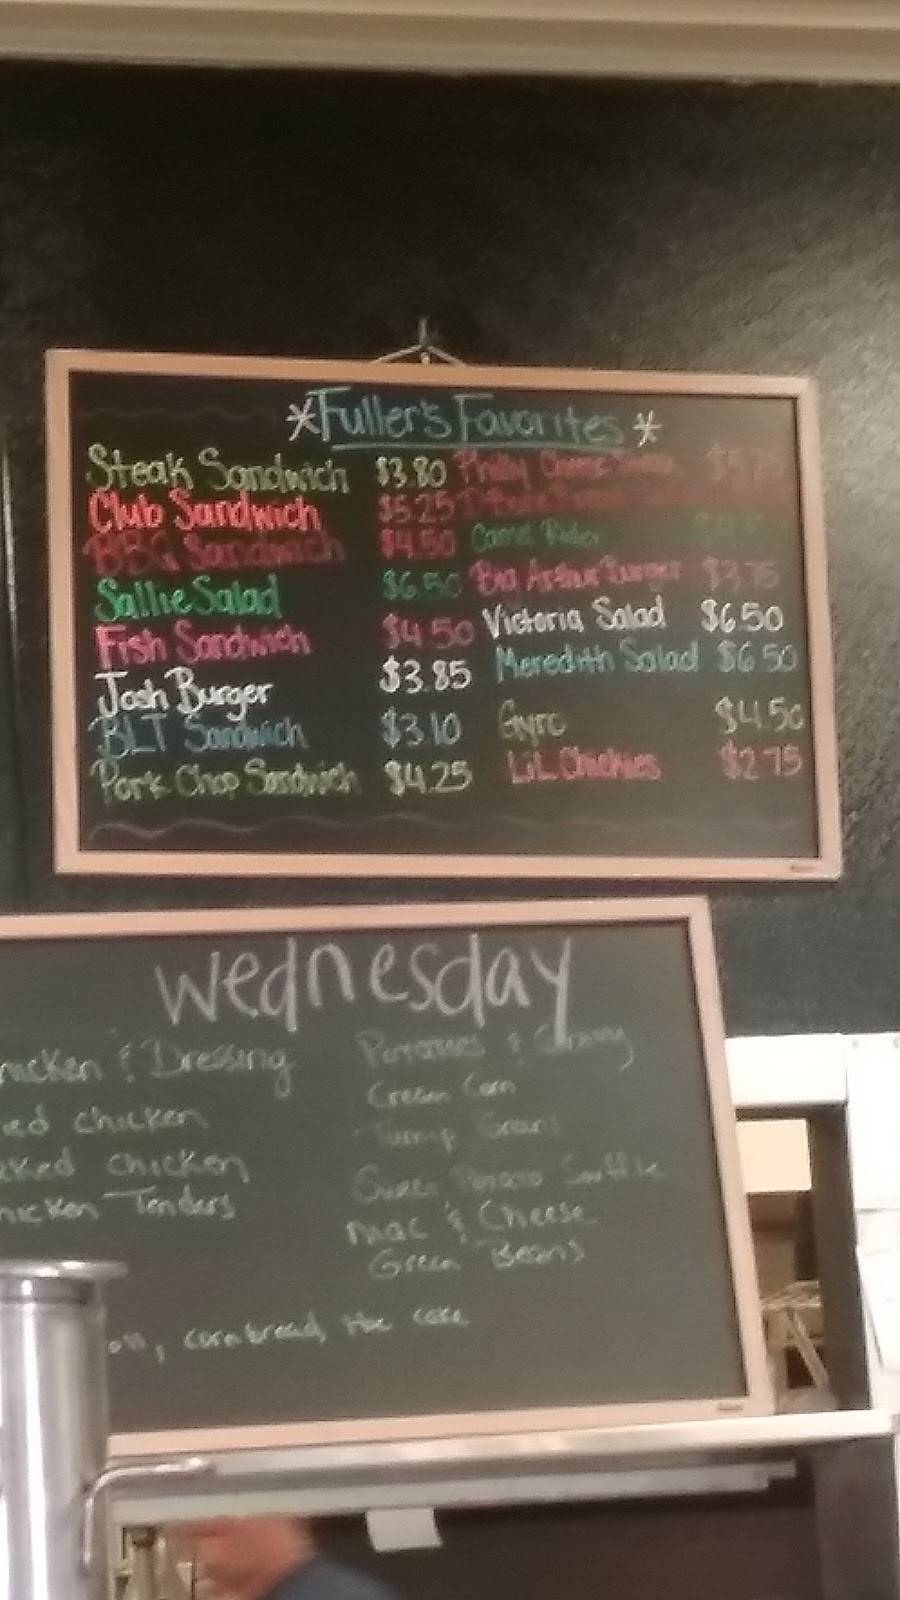 *Fuller's Favorites*
Steak Sandwich $3.80
Club Sandwich $5.25
BBQ Sandwich $4.50
Sallie Salad $6.50
Fish Sandwich $4.50
Josh Burger $3.85
BLT Sandwich $3.10
Pork Chop Sandwich $4.25
Philly
Camel Rider
Big Arthur Burger $3.75
Victoria Salad $6.50
Meredith Salad $6.50
Gyro $4.50
LiL Chickies $2.75
Wednesday
& Dressing
Chicken
Chicken
Tenders
Potatoes & Gravy
Cream Corn
Turnip
Sweet Potato Souffle
Mac & Cheese
Green Beans
, cornbread, hoe cake